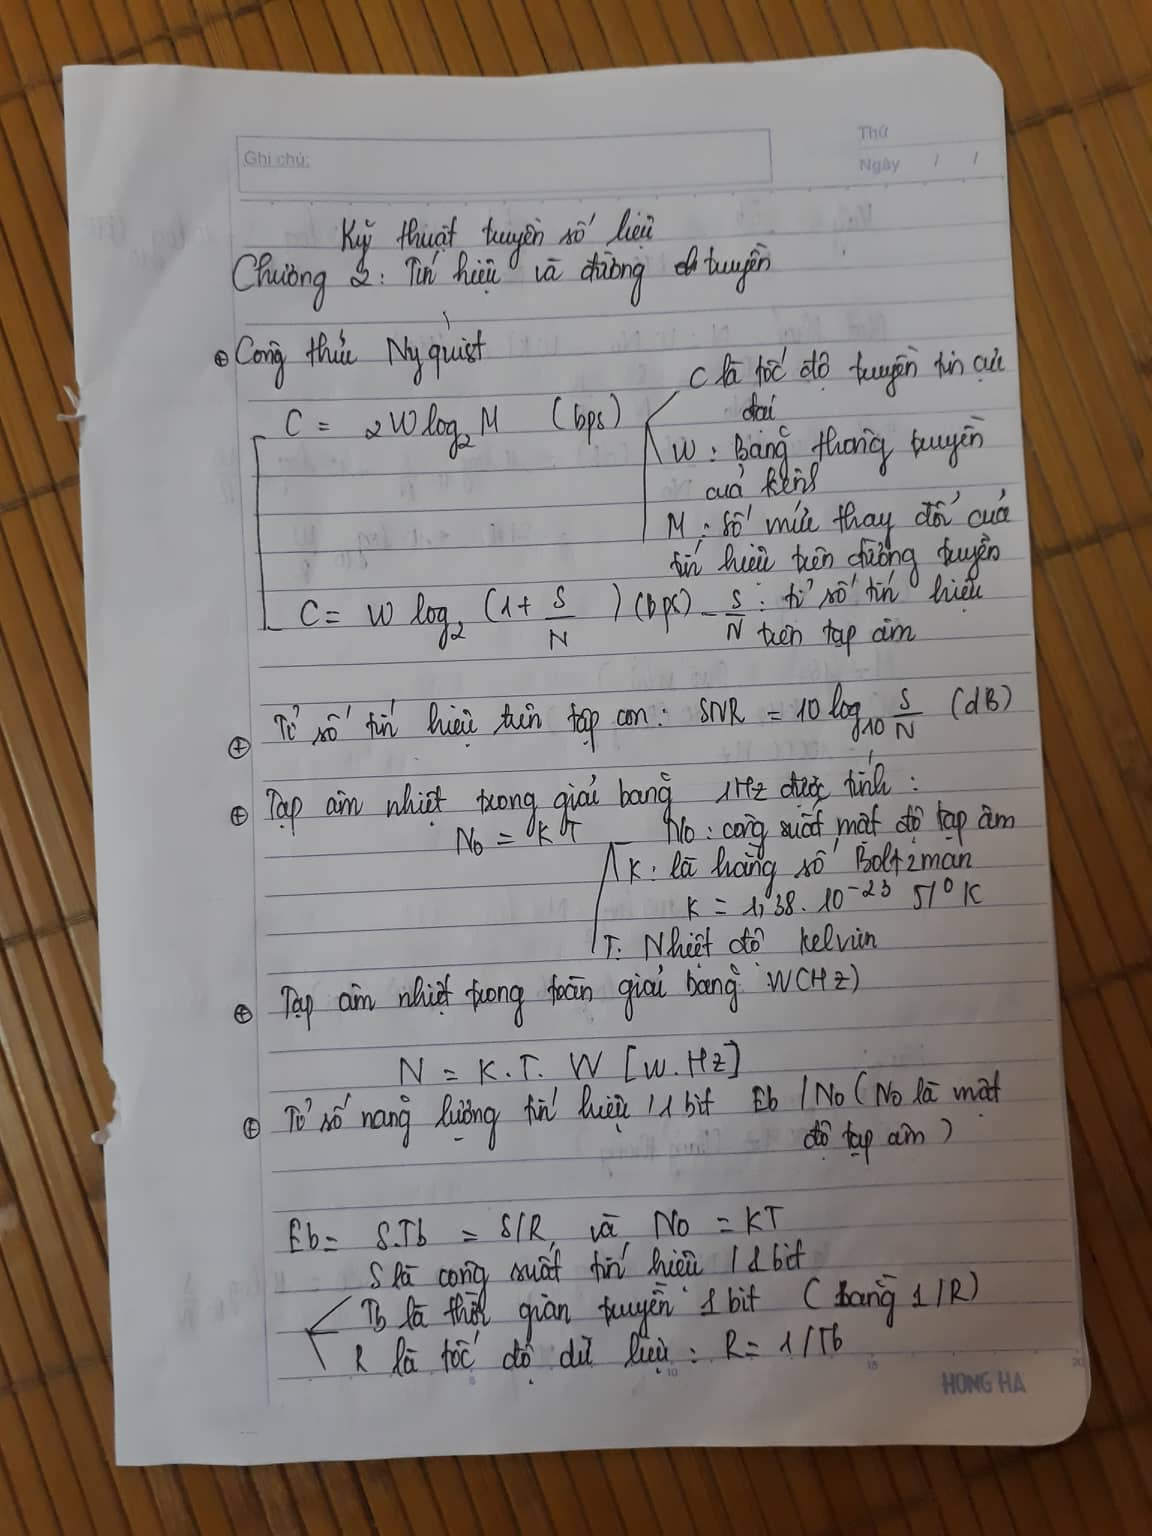 Ghi chú:
Thứ
Ngày / /
Kỹ thuật truyền số liệu
Chương 2: Tín hiệu và đường truyền
⊕ Công thức Nyquist
C = 2W log₂ M (bps)
C là tốc độ truyền tin cực
đại
W: Băng thông truyền
của kênh
M: số mức thay đổi của
tín hiệu trên đường truyền
C = W log₂ (1 + S/N) (bps) - S/N: tỉ số tín hiệu
trên tạp âm
⊕ Tỉ số tín hiệu trên tạp con: SNR = 10 log₁₀ S/N (dB)
⊕ Tạp âm nhiệt trong giải băng 1Hz được tính:
No = KT No: công suất mật độ tạp âm
K: là hằng số Boltzman
K = 1,38. 10⁻²³ J/°K
T: Nhiệt độ kelvin
⊕ Tạp âm nhiệt trong toàn giải băng W(Hz)
N = K.T. W [W.Hz]
⊕ Tỉ số năng lượng tín hiệu /1 bit Eb /No (No là mật
độ tạp âm)
Eb = S.Tb = S/R, và No = KT
S là công suất tín hiệu /1 bit
Tb là thời gian truyền 1 bit (bằng 1/R)
R là tốc độ dữ liệu: R = 1/Tb
5 10 15 20
HONG HA